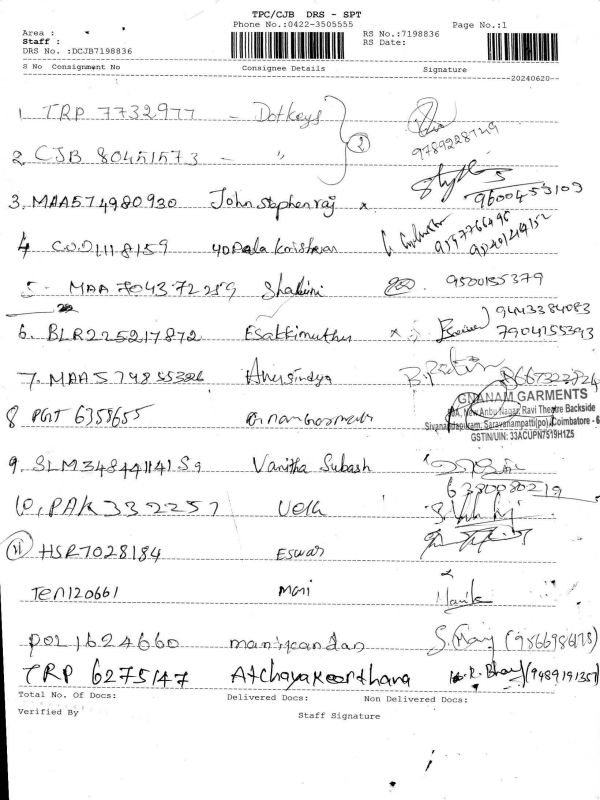 TPC/CJB DRS - SPT
Phone No.:0422-3505555 Page No.:1
Area :
Staff :
DRS No. :DCJB7198836
RS No.:7198836
RS Date:
S No Consignment No Consignee Details Signature
20240620
1 TRP 7732977 - Dotkeys
2. CJB 80451573 - "
(2)
9789228749
3. MAA574980930 John stephenraj x
9600453103
4 1118159 krishnan
5. MAA 704372259 Shalini 9500135379
6. BLR225217872 Esakkimuthu x
9443384083
7904255393
7. MAA579855326 Anusindya
8 PGT 6358655
GNANAM GARMENTS
New Anbu Nagar, Ravi Theatre Backside
Saravanampatti(po), Coimbatore - 6
GSTIN/UIN: 33ACUPN7519H1Z5
9. SLM348441141 Vanitha Subash
6380080219
10. PAK332257
11 HSR7028184 Eswar
Ten120661 Mani
POL1624660 manikandan S. Many (9866986178)
TRP 6275147 Atchayakeerthana (9489191357)
Total No. Of Docs: Delivered Docs: Non Delivered Docs:
Verified By Staff Signature